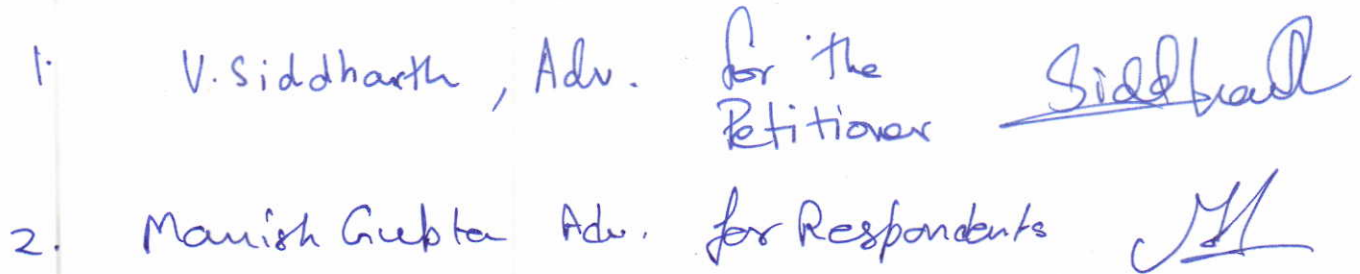 1. V. Siddharth, Adv. for the
Petitioner Siddharth
2. Manish Gupta Adv. for Respondents